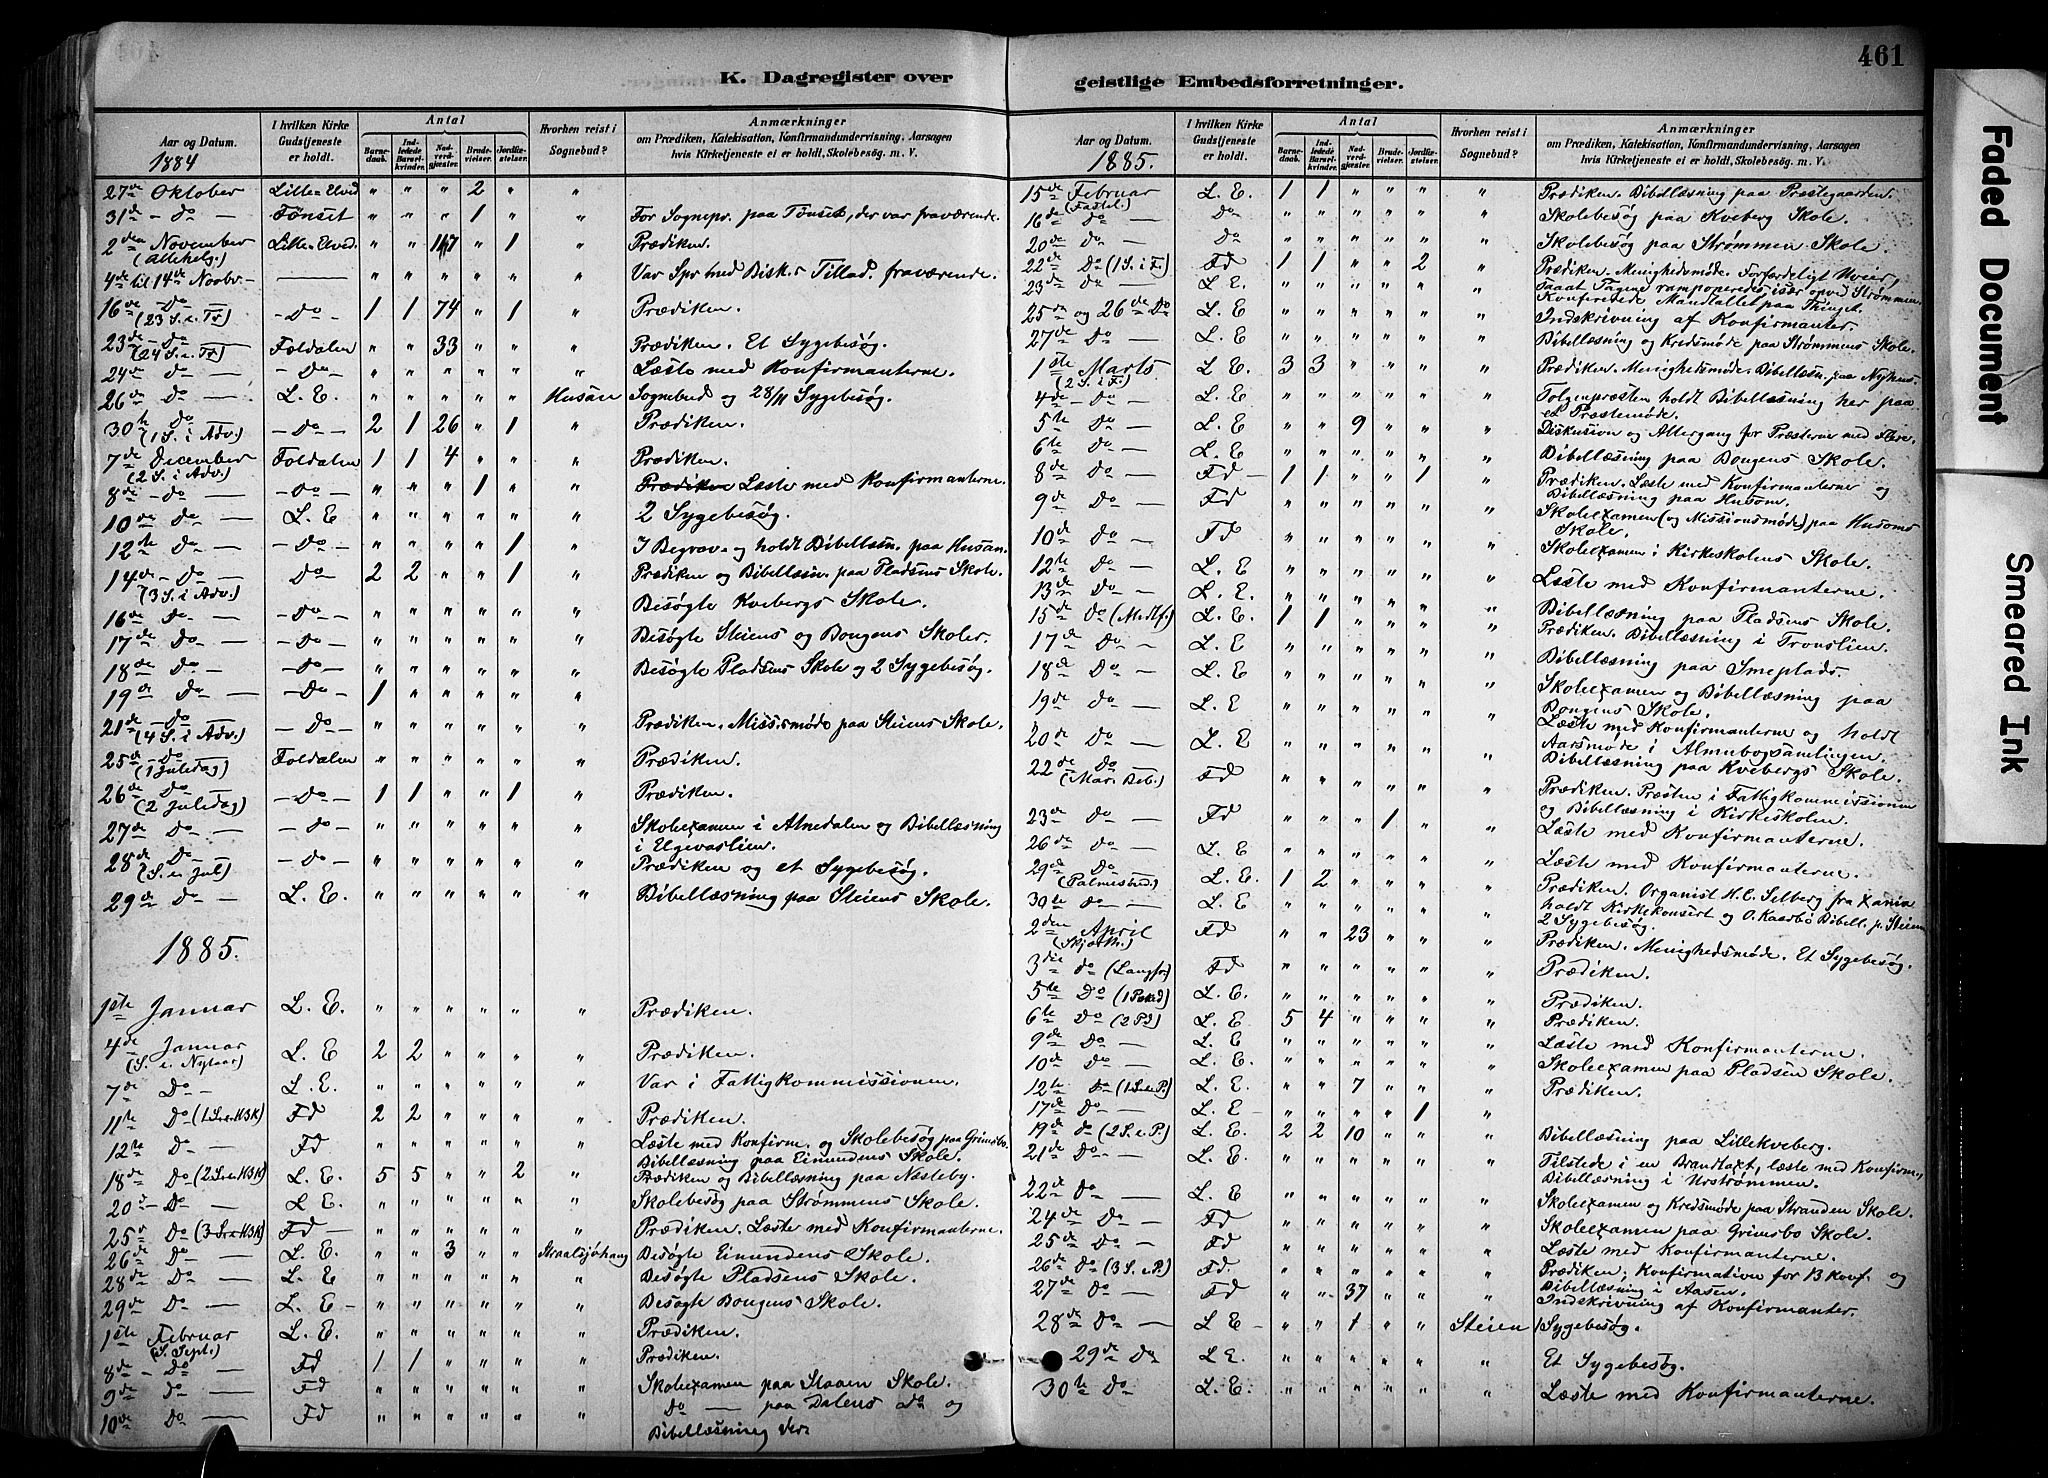 461
K. Dagregister over
Aar og Datum. | I hvilken Kirke Gudstjeneste er holdt. | Antal | Barnedaab. | Indledede Barselkvinder. | Nadverdgjester. | Brudevielser. | Jordfæstelser. | Hvorhen reist i Sognebud? | Anmærkninger om Prædiken, Katekisation, Konfirmandundervisning, Aarsagen hvis Kirketjeneste ei er holdt, Skolebesøg. m. V.
1884
27de Oktober | Lille-Elved | " | " | " | 2 | " | "
31de - Do - | Tønset | " | " | " | 1 | " | " | For Sognepr. paa Tønset, der var fraværende.
2den November (allehelg.) | Lille-Elved | " | " | 167 | " | 1 | " | Prædiken.
4de til 14de Novbr. - | " | " | " | " | " | " | Var Spr. med Bisk.s Tillad. fraværende.
16de - Do - (23 S. e. Tr.) | - Do - | 1 | 1 | 74 | " | 1 | " | Prædiken.
23de - Do - (24 S. e. Tr.) | Foldalen | " | " | 33 | " | " | " | Prædiken. Et Sygebesøg.
24de Do - | - Do - | " | " | " | " | " | " | Læste med Konfirmanterne.
26de Do - | L. E. | " | " | " | " | " | Husan | Sognebud og 28/11 Sygebesøg.
30te Do (1 S. i Adv.) | - Do - | 2 | 1 | 26 | " | 1 | " | Prædiken.
7de December (2 S. i Adv.) | Foldalen | 1 | 1 | 4 | " | " | " | Prædiken.
8de - Do - | - Do - | " | " | " | 1 | " | " | Prædiken Læste med Konfirmanterne.
10de Do - | L. E | " | " | " | " | " | " | 2 Sygebesøg.
12te Do - | - Do - | " | " | " | " | 1 | " | I Begrav. og holdt Bibellæsn. paa Husan.
14de - Do - (3 S. i Adv.) | Do - | 2 | 2 | " | " | 1 | " | Prædiken og Bibellæsn. paa Pladsens Skole.
16de Do - | - Do - | " | " | " | " | " | " | Besøgte Kvebergs Skole.
17de Do - | - Do - | " | " | " | " | " | " | Besøgte Steiens og Bongens Skoler.
18de Do - | - Do - | " | " | " | " | " | " | Besøgte Pladsens Skole og 2 Sygebesøg.
19de Do - | - Do - | 1 | " | " | " | " | "
21de - Do - (4 S. i Adv.) | - Do - | " | " | " | " | " | " | Prædiken. Missmøde paa Steiens Skole.
25de - Do (1 Juledag) | Foldalen | " | " | " | " | " | " | Prædiken.
26de - Do - (2 Juledag) | - Do - | 1 | 1 | " | " | 1 | " | Prædiken.
27de Do - | - Do - | " | " | " | " | " | " | Skoleexamen i Atnedalen og Bibellæsning
28de Do - (S. e. Jul) | - Do - | " | " | " | " | " | " | Prædiken og et Sygebesøg.
29de Do - | L. E. | " | " | " | " | " | " | Bibellæsning paa Steiens Skole.
1885.
1ste Januar | L. E. | " | " | " | " | " | " | Prædiken.
4de Januar (S. e. Nytaar) | L. E | 2 | 2 | " | " | " | " | Prædiken.
7de Do - | L. E. | " | " | " | " | " | " | Var i Fattigkommissionen.
11te Do (1 S. e. H3K) | Fd | 2 | 2 | " | " | " | " | Prædiken.
12te Do - | Fd | " | " | " | " | " | " | Læste med Konfirm. og Skolebesøg paa Grimsbo.
Bibellæsning paa Eimundens Skole.
18de Do (2 S. e. H3K) | L. E. | 5 | 5 | " | " | 2 | " | Prædiken og Bibellæsning paa Næsteby.
20de - Do - | L. E. | " | " | " | " | " | " | Skolebesøg paa Strømmens Skole.
25de Do (3 S. e. H3K) | Fd - | " | " | " | " | " | " | Prædiken. Læste med Konfirmanterne.
26de Do - | L. E. | " | " | 3 | " | " | Straalsjøhaug | Besøgte Eimundens Skole.
28de Do - | L. E | " | " | " | " | " | " | Besøgte Pladsens Skole.
29de Do - | L. E - | " | " | " | " | " | " | Besøgte Bongens Skole.
1ste Februar (S. Sept.) | L. E. | " | " | " | " | " | " | Prædiken.
8de - Do - | Fd | 1 | 1 | " | " | " | " | Prædiken.
9de Do - | Fd | " | " | " | " | " | " | Skoleexamen paa Slaaen Skole.
10de Do - | Fd | " | " | " | " | " | " | Do - paa Dalens do og
Bibellæsning der.
geistlige Embedsforretninger.
Aar og Datum. | I hvilken Kirke Gudstjeneste er holdt. | Antal | Barnedaab. | Indledede Barselkvinder. | Nadverdgjester. | Brudevielser. | Jordfæstelser. | Hvorhen reist i Sognebud? | Anmærkninger om Prædiken, Katekisation, Konfirmandundervisning, Aarsagen hvis Kirketjeneste ei er holdt, Skolebesøg. m. V.
1885.
15de Februar (Fastel.) | L. E. | 1 | 1 | " | " | " | " | Prædiken. Bibellæsning paa Præstegaarden.
16de Do - | Do | " | " | " | " | " | " | Skolebesøg paa Kveberg Skole.
20de Do - | Do | " | " | " | " | " | " | Skolebesøg paa Strømmen Skole.
22de Do (1 S. i F.) | Fd | 1 | 1 | " | " | 2 | " | Prædiken. Menighedsmøde. Forfærdeligt Uveir,
23de Do - | L. E. | " | " | " | " | " | " | saaat Tagene ramponeredes især ovenf. Strømmen.
25de og 26de Do | L. E | " | " | " | " | " | " | Konfererede Mandtallet paa Thinget.
Indskrivning af Konfirmanter.
27de Do - | L. E | " | " | " | " | " | " | Bibellæsning og Kredsmøde paa Strømmens Skole.
1ste Marts (2 S. i F.) | L. E | 3 | 3 | " | " | " | " | Prædiken. Menighedsmøde. Bibellæsn. paa Nyhus.
4de - Do - | L. E | " | " | " | " | " | " | Tolgenpræsten holdt Bibellæsning her paa
et Præstemøde.
5te Do - | L. E | " | " | 9 | " | " | " | Diskusion og Altergang for Præsterne med flere.
6te Do - | L. E. | " | " | " | " | " | " | Bibellæsning paa Bongens Skole.
8de Do - | Fd - | 1 | 1 | " | " | 1 | " | Prædiken. Læste med Konfirmanterne og
Bibellæsning paa Husom.
9de Do - | Fd | " | " | " | " | " | " | Skoleexamen (og Missionsmøde) paa Husoms
Skole.
10de Do - | Fd | " | " | " | " | " | " | Skoleexamen i Kirkeskolens Skole.
12te Do - | L. E | " | " | " | " | " | " | Læste med Konfirmanterne.
13de Do - | L. E. | " | " | " | " | " | " | Bibellæsning paa Pladsens Skole.
15de Do (Midtf.) | L. E. | 1 | 1 | " | " | " | " | Prædiken. Bibellæsning i Tronslien.
17de Do - | L. E | " | " | " | " | " | " | Bibellæsning paa Smeplads.
18de Do - | L. E | " | " | " | " | " | " | Skoleexamen og Bibellæsning paa
Bongens Skole.
19de Do - | L. E | " | " | " | " | " | " | Læste med Konfirmanterne og holdt
Aarsmøde i Almubogsamlingen.
20de Do - | L. E | " | " | " | " | " | " | Bibellæsning paa Kvebergs Skole.
22de Do (Mar. Beb.) | Fd | " | " | " | " | " | " | Prædiken. Præsten i Fattigkommissionen
og Bibellæsning i Kirkeskolen.
23de Do - | Fd | " | " | " | 1 | " | " | Læste med Konfirmanterne.
26de Do - | L. E | " | " | " | " | " | " | Læste med Konfirmanterne.
29de Do (Palmesønd.) | L. E. | 1 | 2 | " | " | " | " | Prædiken. Organist H. C. Selberg fra Xania
30te Do - | L. E | " | " | " | " | " | " | holdt Kirkekonsert og O. Kaarbø Bibell. p. Steien
2 Sygebesøg.
2den April (Skjærth.) | Fd | " | " | 23 | " | " | " | Prædiken. Menighedsmøde. Et Sygebesøg.
3die do (Langfr.) | Fd | " | " | " | " | " | " | Prædiken.
5te Do (1 Paaskd) | L. E. | " | " | " | " | " | " | Prædiken.
6te Do (2 Pd) | L. E | 5 | 4 | " | " | " | " | Prædiken.
9de Do - | L. E | " | " | " | " | " | " | Læste med Konfirmanterne.
10de Do - | L. E. | " | " | " | " | " | " | Skoleexamen paa Pladsen Skole.
12te Do (1 S. e P.) | L. E. | " | " | 7 | " | " | " | Prædiken.
17de Do - | L. E - | " | " | " | " | 1 | "
19de do (2 S. e P.) | L. E. | 2 | 2 | 10 | " | " | " | Bibellæsning paa Lillekveberg.
21de Do - | L. E. | " | " | " | " | " | " | Tilstede i en Brandtaxt, læste med Konfirm.,
Bibellæsning i Urstrømmen.
22de Do - | L. E | " | " | " | " | " | " | Skoleexamen og Kredsmøde paa Stranden Skole.
24de Do - | Fd | " | " | " | " | " | " | Skoleexamen paa Grimsbo Skole.
25de Do - | Fd | " | " | " | " | " | " | Læste med Konfirmanterne.
26de Do (3 S. e P.) | Fd. | " | " | " | " | " | " | Prædiken, Konfirmation for 13 Konf. og
27de Do - | Fd | " | " | 37 | " | " | " | Bibellæsning i Aasen.
Indskrivning af Konfirmanter.
28de Do - | L E - | " | " | 1 | " | " | Steien | 1 Sygebesøg.
29de Do | L E. | " | " | " | " | " | " | Et Sygebesøg.
30te Do | L. E. | " | " | " | " | " | " | Læste med Konfirmanterne.
Faded Document
Smeared Ink